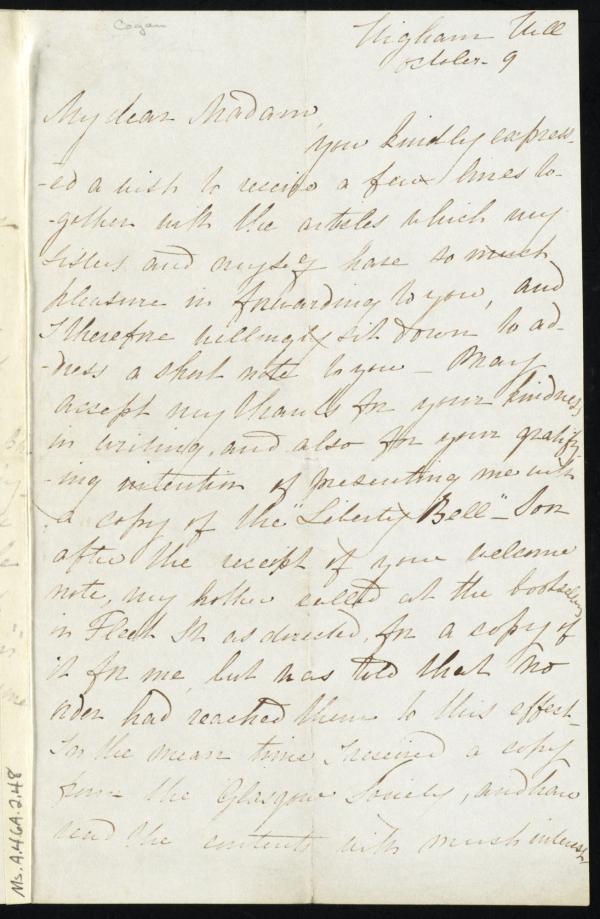 Cogan
Higham Hill
October 9
My dear Madam,
you kindly express-
-ed a wish to receive a few lines to-
-gether with the articles which my
sisters and myself have so much
pleasure in forwarding to you, and
I therefore willingly sit down to ad-
-dress a short note to you – May
accept my thanks for your kindness,
in writing, and also for your gratify-
-ing intention of presenting me with
a copy of the "Liberty Bell" – Soon
after the receipt of your welcome
note, my brother called at the booksellers
in Fleet St as directed, for a copy of
it for me, but was told that no
order had reached them to this effect –
In the mean time I received a copy
from the Glasgow Society, and have
read the contents with much interest.
Ms.A.46A.2.48